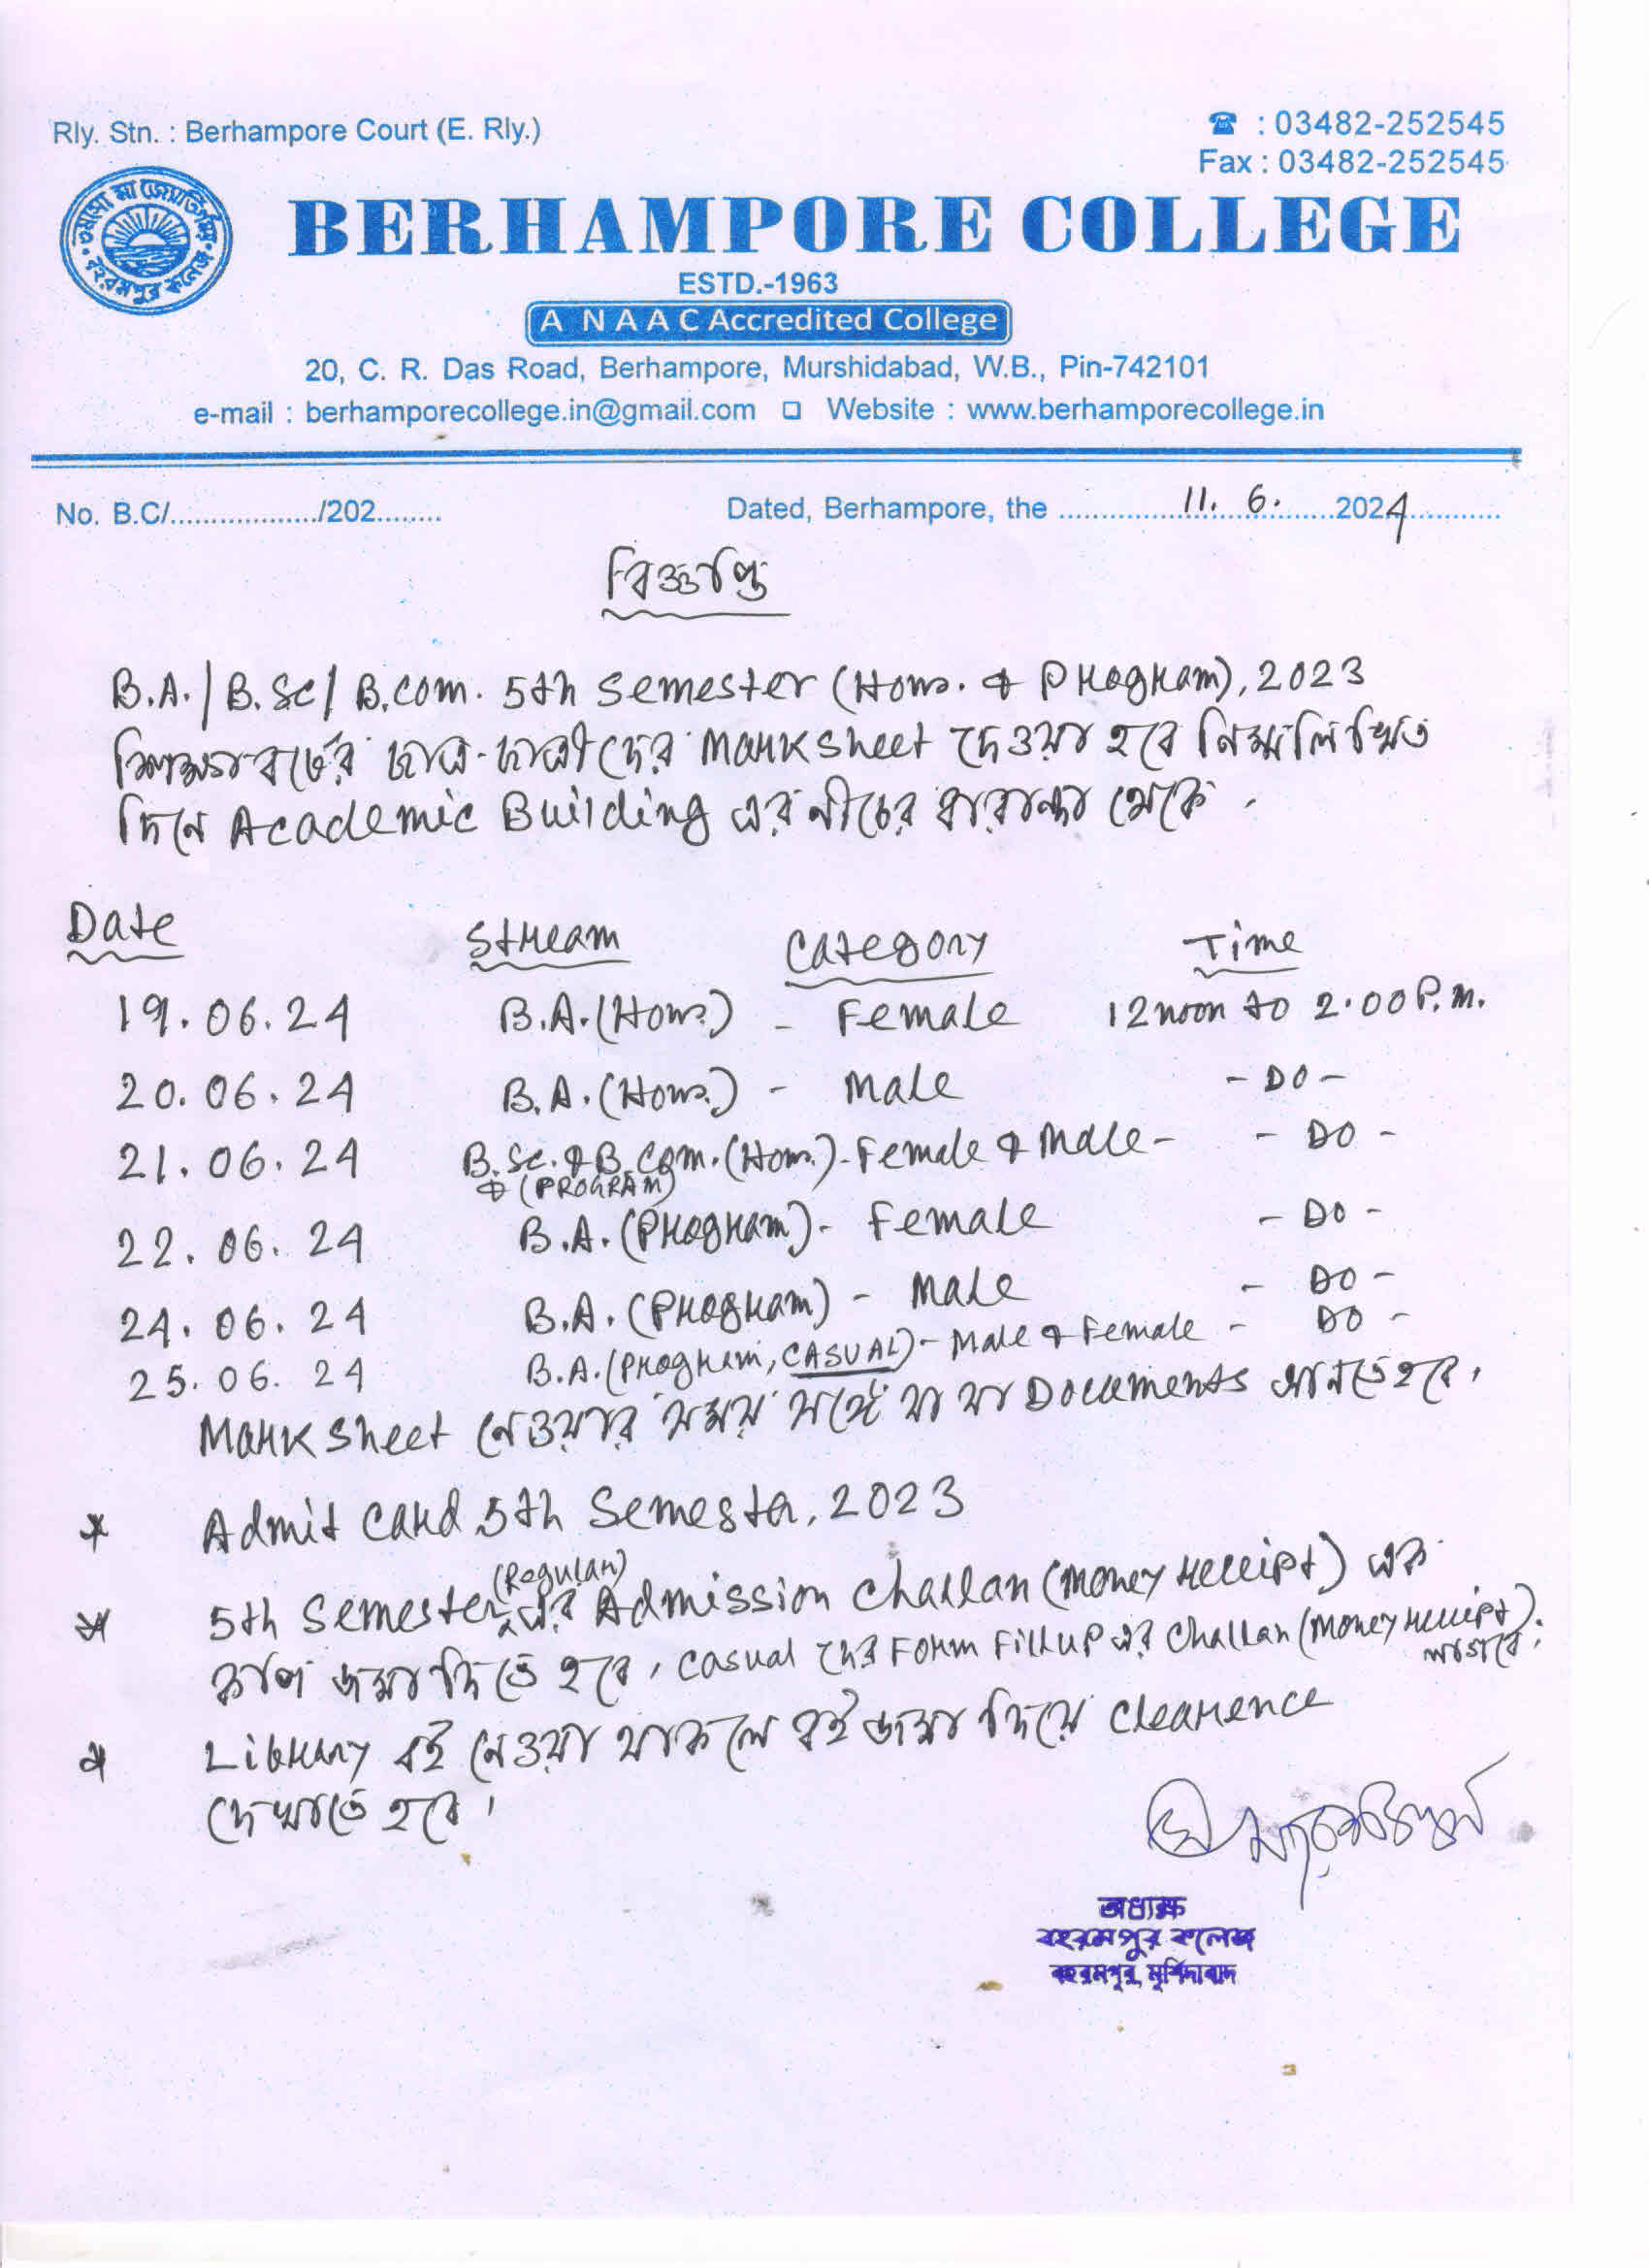 Rly. Stn. : Berhampore Court (E. Rly.)
☎ : 03482-252545
Fax : 03482-252545
তমসো মা জ্যোতির্গময়
বহরমপুর কলেজ
BERHAMPORE COLLEGE
ESTD.-1963
A NAAC Accredited College
20, C. R. Das Road, Berhampore, Murshidabad, W.B., Pin-742101
e-mail : berhamporecollege.in@gmail.com ❑ Website : www.berhamporecollege.in
No. B.C/................../202........ Dated, Berhampore, the ..........11. 6. ..........2024............
বিজ্ঞপ্তি
B.A./B.Sc/B.Com. 5th Semester (Hons. & Program), 2023
শিক্ষাবর্ষের ছাত্র-ছাত্রীদের Mark sheet দেওয়া হবে নিম্নলিখিত
দিনে Academic Building এর নীচের বারান্দা থেকে.
Date Stream Category Time
19.06.24 B.A.(Hons.) - Female 12 noon to 2.00 P.M.
20.06.24 B.A.(Hons.) - Male - DO -
21.06.24 B.Sc. & B.Com.(Hons.)- Female & Male - - DO -
& (PROGRAM)
22.06.24 B.A.(Program)- Female - DO -
24.06.24 B.A.(Program) - Male - DO -
25.06.24 B.A.(Program, CASUAL)- Male & Female - DO -
Mark sheet নেওয়ার সময় সঙ্গে যা যা Documents আনতে হবে।
* Admit Card 5th Semester, 2023
* 5th Semester (Regular) এর Admission Challan (Money Receipt) এক
কপি জমা দিতে হবে। Casual দের Form Fill up এর Challan (Money Receipt)
লাগবে।
* Library বই নেওয়া থাকলে বই জমা দিয়ে Clearence
দেখাতে হবে।
অধ্যক্ষ
বহরমপুর কলেজ
বহরমপুর, মুর্শিদাবাদ